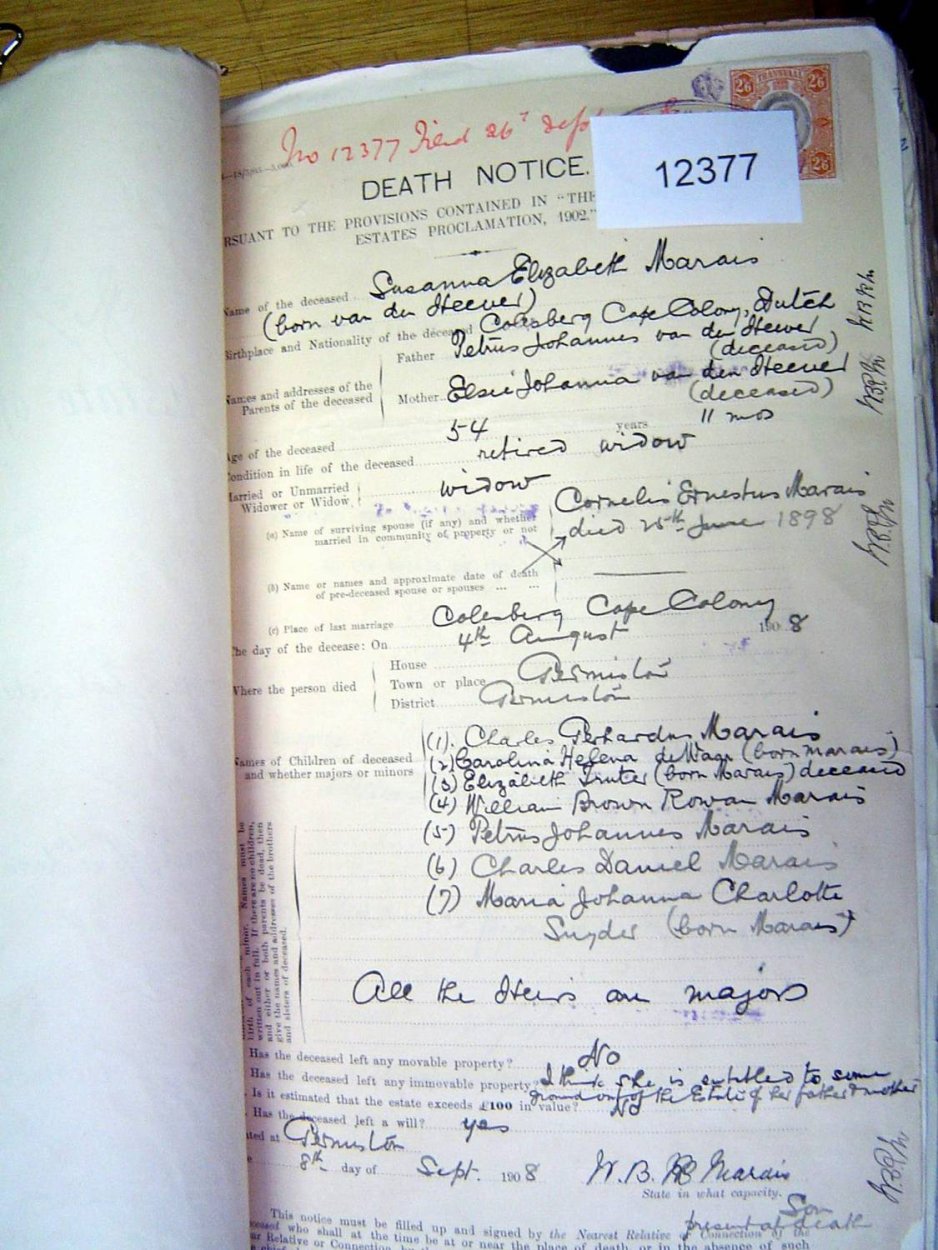 No 12377 Filed 26th Sept
TRANSVAAL
2/6 2/6
2/6
12377
DEATH NOTICE.
RSUANT TO THE PROVISIONS CONTAINED IN "THE
ESTATES PROCLAMATION, 1902."
Name of the deceased Susanna Elizabeth Marais
(born van den Heever)
Birthplace and Nationality of the deceased Colesberg Cape Colony, Dutch
Names and addresses of the Parents of the deceased
Father Petrus Johannes van den Heever
(deceased)
Mother Elsie Johanna van den Heever
(deceased)
Age of the deceased 54 years 11 mos
Condition in life of the deceased retired widow
Married or Unmarried
Widower or Widow widow
(a) Name of surviving spouse (if any) and whether
married in community of property or not
Cornelis Ernestus Marais
died 25th June 1898
(b) Name or names and approximate date of death
of pre-deceased spouse or spouses ... ...
(c) Place of last marriage Colesberg Cape Colony
The day of the decease: On 4th August 1908
Where the person died
House
Town or place Germiston
District Germiston
Names of Children of deceased
and whether majors or minors
(1). Charles Gerhardus Marais
(2) Carolina Helena de Waal (born Marais)
(3) Elizabeth Truter (born Marais) deceased
(4) William Brown Rowan Marais
(5) Petrus Johannes Marais
(6) Charles Daniel Marais
(7) Maria Johanna Charlotte
Snyder (born Marais)
birth of each minor. Names must be
written out in full. If there are no children,
and either or both parents be dead, then
give the names and addresses of the brothers
and sisters of deceased.
All the Heirs are majors
Has the deceased left any movable property? No
Has the deceased left any immovable property? I think she is entitled to some
ground out of the Estate of her father & mother
Is it estimated that the estate exceeds £100 in value? No
Has the deceased left a will? yes
ted at Germiston
8th day of Sept. 1908
W. B. R. Marais
State in what capacity.
Son
present at death
This notice must be filled up and signed by the Nearest Relative or Connection of the
deceased who shall at the time be at or near the place of death, or in the absence of such